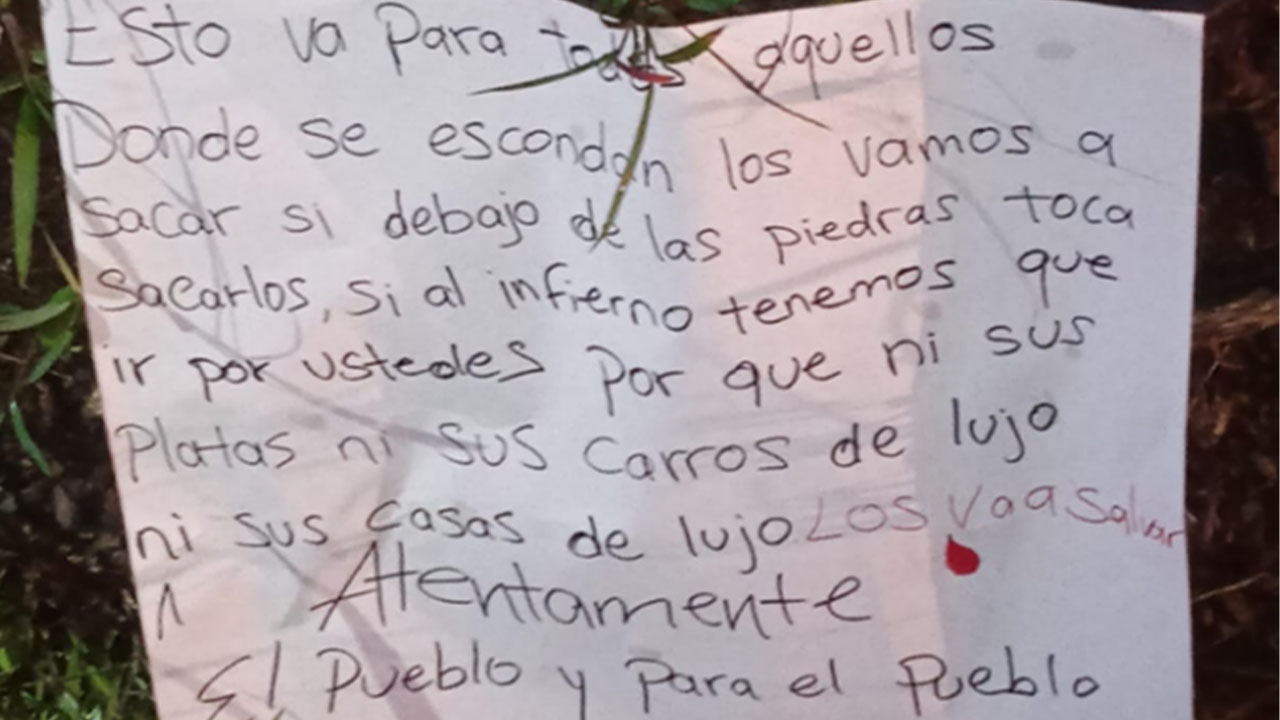 Esto va Para todos aquellos
Donde se escondan los vamos a
sacar si debajo de las piedras toca
sacarlos, si al infierno tenemos que
ir por ustedes por que ni sus
Platas ni sus carros de lujo
ni sus casas de lujo Los va a salvar
Atentamente
El Pueblo y para el pueblo